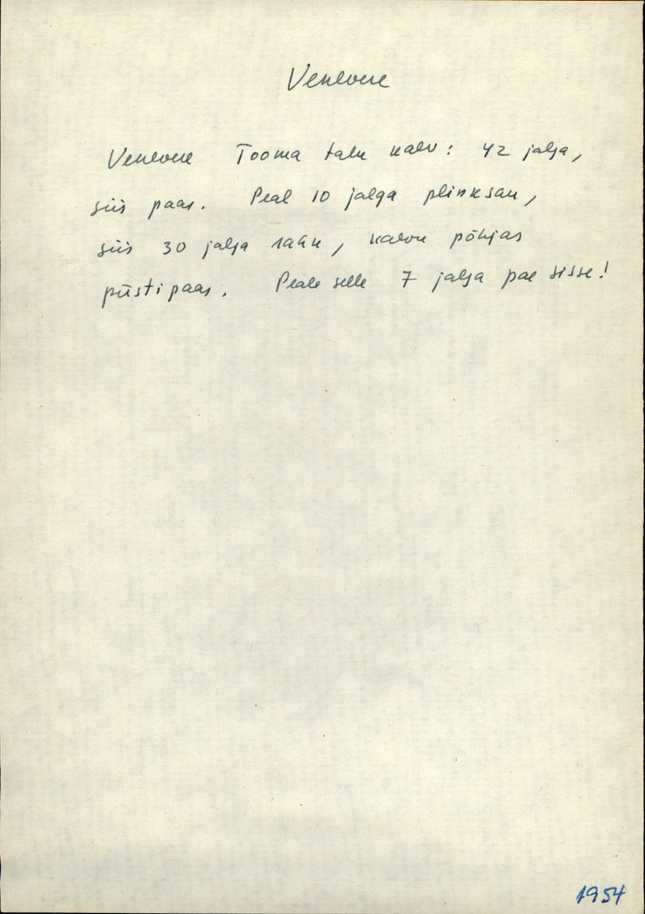 Venevere
Venevere Tooma talu kaev: 42 jalga,
siis paas. Peal 10 jalga plinksau,
siis 30 jalga rähk, kaevu põhjas
püstipaas. Peale selle 7 jalga pae sisse!
1954